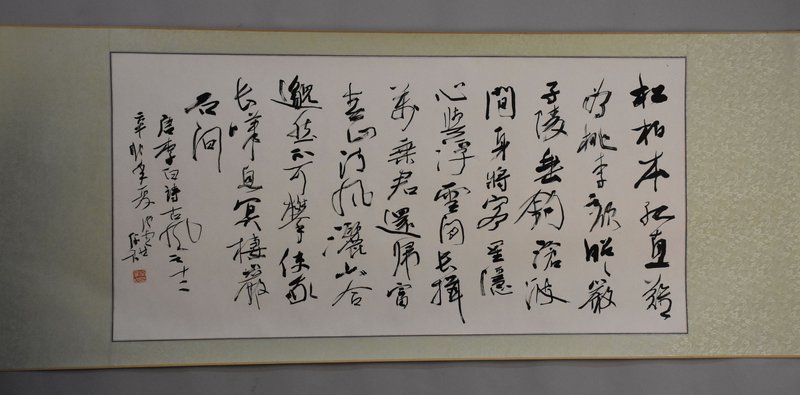 松柏本孤直難
為桃李顏昭々嚴
子陵垂釣滄波
間身將客星隱
心與浮雲閑長揖
萬乘君還歸富
春山清風灑六合
邈然不可攀使我
長嘆息冥棲巖
石間
唐李白詩古風之十二
辛卯年夏